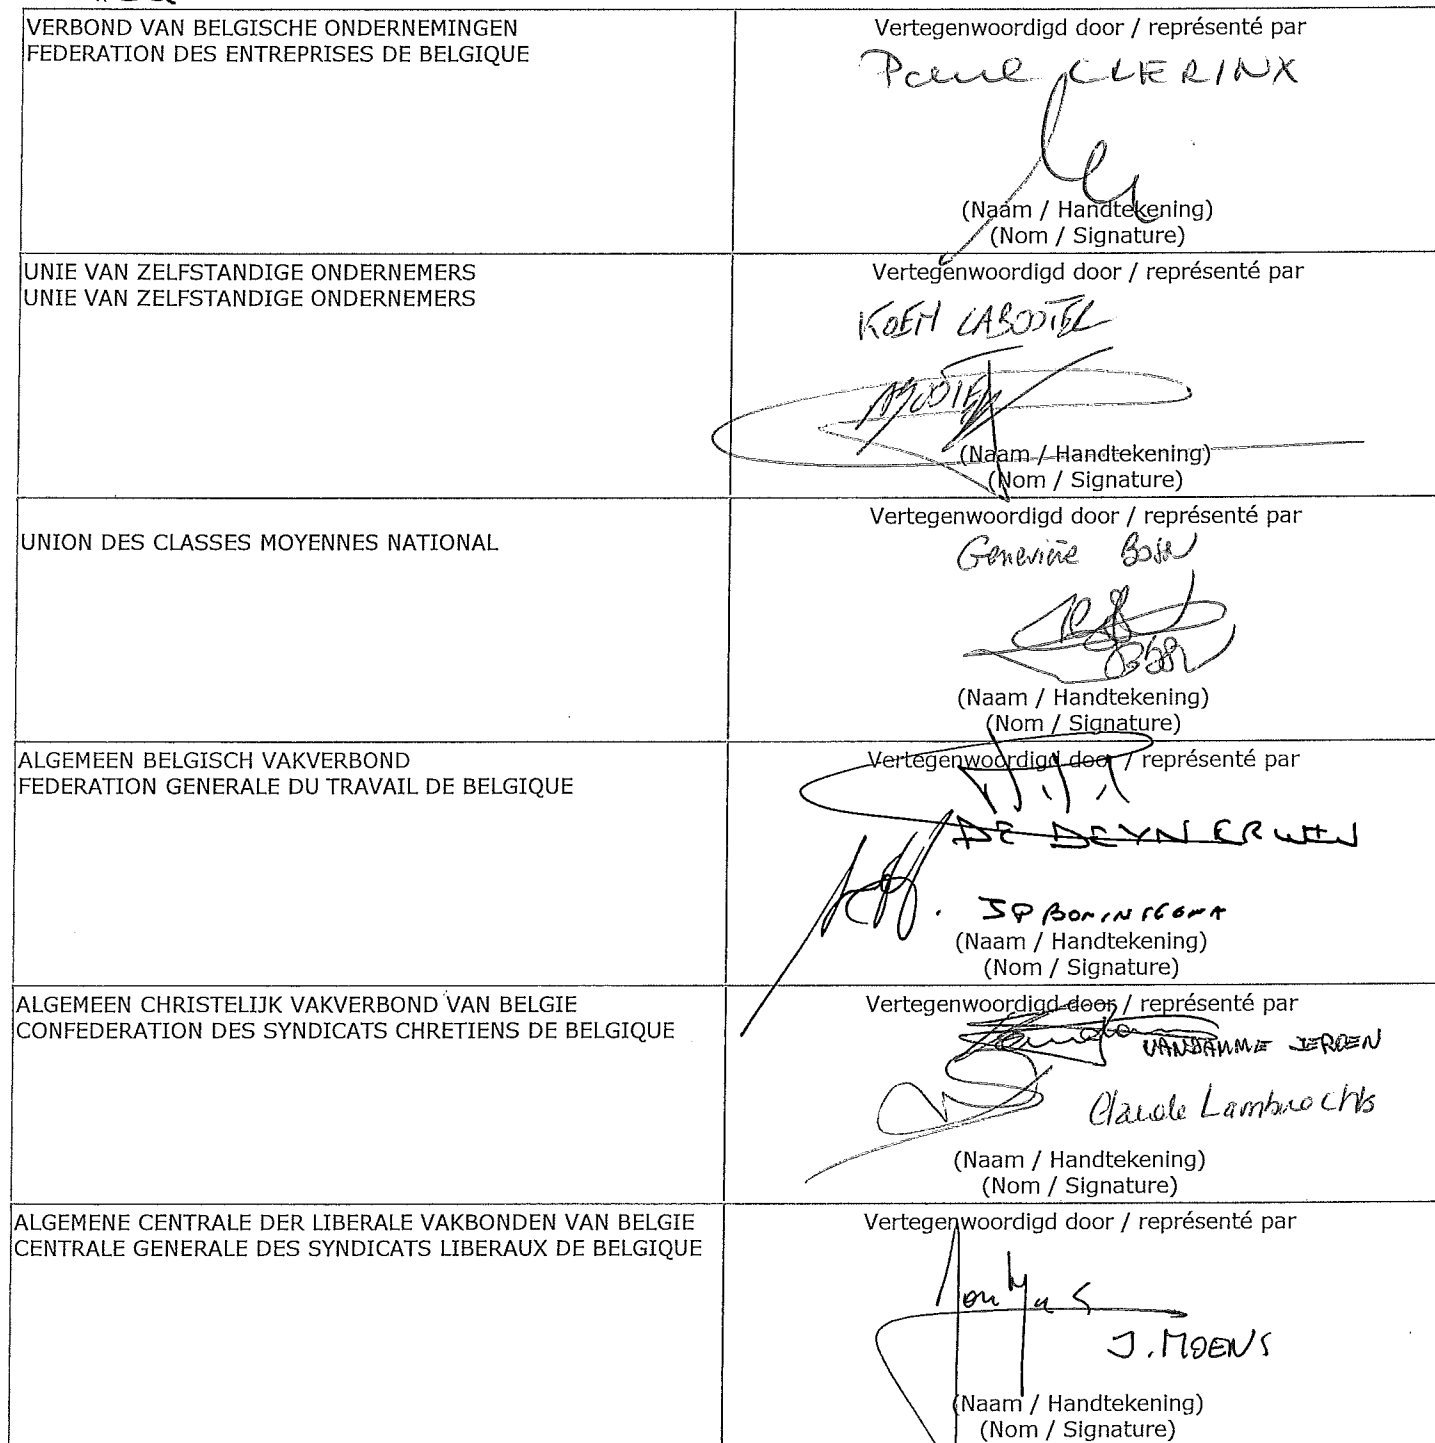 VERBOND VAN BELGISCHE ONDERNEMINGEN
FEDERATION DES ENTREPRISES DE BELGIQUE
Vertegenwoordigd door / représenté par
Paul CLERINX
(Naam / Handtekening)
(Nom / Signature)
UNIE VAN ZELFSTANDIGE ONDERNEMERS
UNIE VAN ZELFSTANDIGE ONDERNEMERS
Vertegenwoordigd door / représenté par
KOEN CABOOTER
(Naam / Handtekening)
(Nom / Signature)
UNION DES CLASSES MOYENNES NATIONAL
Vertegenwoordigd door / représenté par
Geneviève Bossu
(Naam / Handtekening)
(Nom / Signature)
ALGEMEEN BELGISCH VAKVERBOND
FEDERATION GENERALE DU TRAVAIL DE BELGIQUE
Vertegenwoordigd door / représenté par
DE DEYN ERWIN
JP BONINSEGNA
(Naam / Handtekening)
(Nom / Signature)
ALGEMEEN CHRISTELIJK VAKVERBOND VAN BELGIE
CONFEDERATION DES SYNDICATS CHRETIENS DE BELGIQUE
Vertegenwoordigd door / représenté par
VANDAMME JEROEN
Claude Lambrechts
(Naam / Handtekening)
(Nom / Signature)
ALGEMENE CENTRALE DER LIBERALE VAKBONDEN VAN BELGIE
CENTRALE GENERALE DES SYNDICATS LIBERAUX DE BELGIQUE
Vertegenwoordigd door / représenté par
J. MOENS
(Naam / Handtekening)
(Nom / Signature)